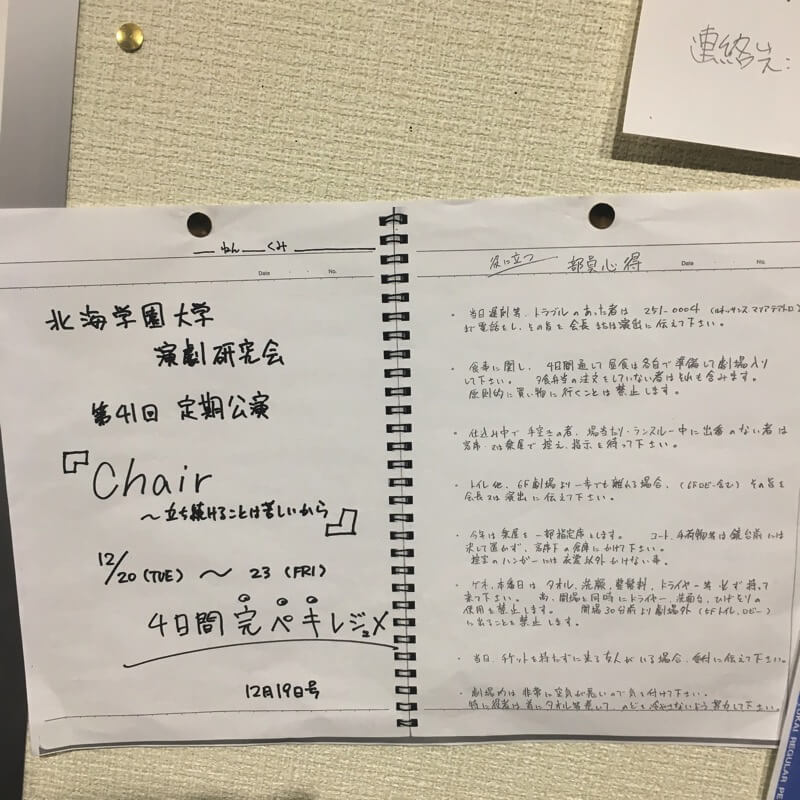 連絡
__ねん__くみ
Date No.
北海学園大学
演劇研究会
第41回 定期公演
『Chair
～立ち続けることは苦しいから』
12/20(TUE) ～ 23(FRI)
4日間完ペキレジュメ
12月19日号
役に立つ 部員心得
Date No.
・当日遅刻等、トラブルのあった者は 251-0004 (ルネッサンスマリアテアトロ)
まで電話をし、その旨を会長または演出に伝えて下さい。
・食事に関し、4日間通して昼食は各自で準備して劇場入り
して下さい。 夕食弁当の注文をしていない者はそれも含みます。
原則的に買い物に行くことは禁止します。
・仕込み中で手空きの者、場当たり・ランスルー中に出番のない者は
客席・又は楽屋で控え、指示を待って下さい。
・トイレ他、6F劇場より一歩でも離れる場合、(6Fロビー含む)その旨を
会長又は演出に伝えて下さい。
・今年は楽屋を一部指定席とします。 コート、手荷物等は鏡台前には
決して置かず、客席下の倉庫にかけて下さい。
控室のハンガーには衣装以外かけない事。
・ゲネ、本番日は タオル、洗顔、整髪料、ドライヤー等 必ず持って
来て下さい。 尚、開場と同時にドライヤー、洗面台、ひげそりの
使用を禁止します。 開場30分前より劇場外(5Fトイレ、ロビー)
に出ることを禁止します。
・当日、チケットを持たずに来る友人がいる場合、受付に伝えて下さい。
・劇場内は非常に空気が悪いので気を付けて下さい。
特に役者は首にタオル等巻いて、のどを冷やさないよう努力して下さい。
TOKAI REGULAR PE